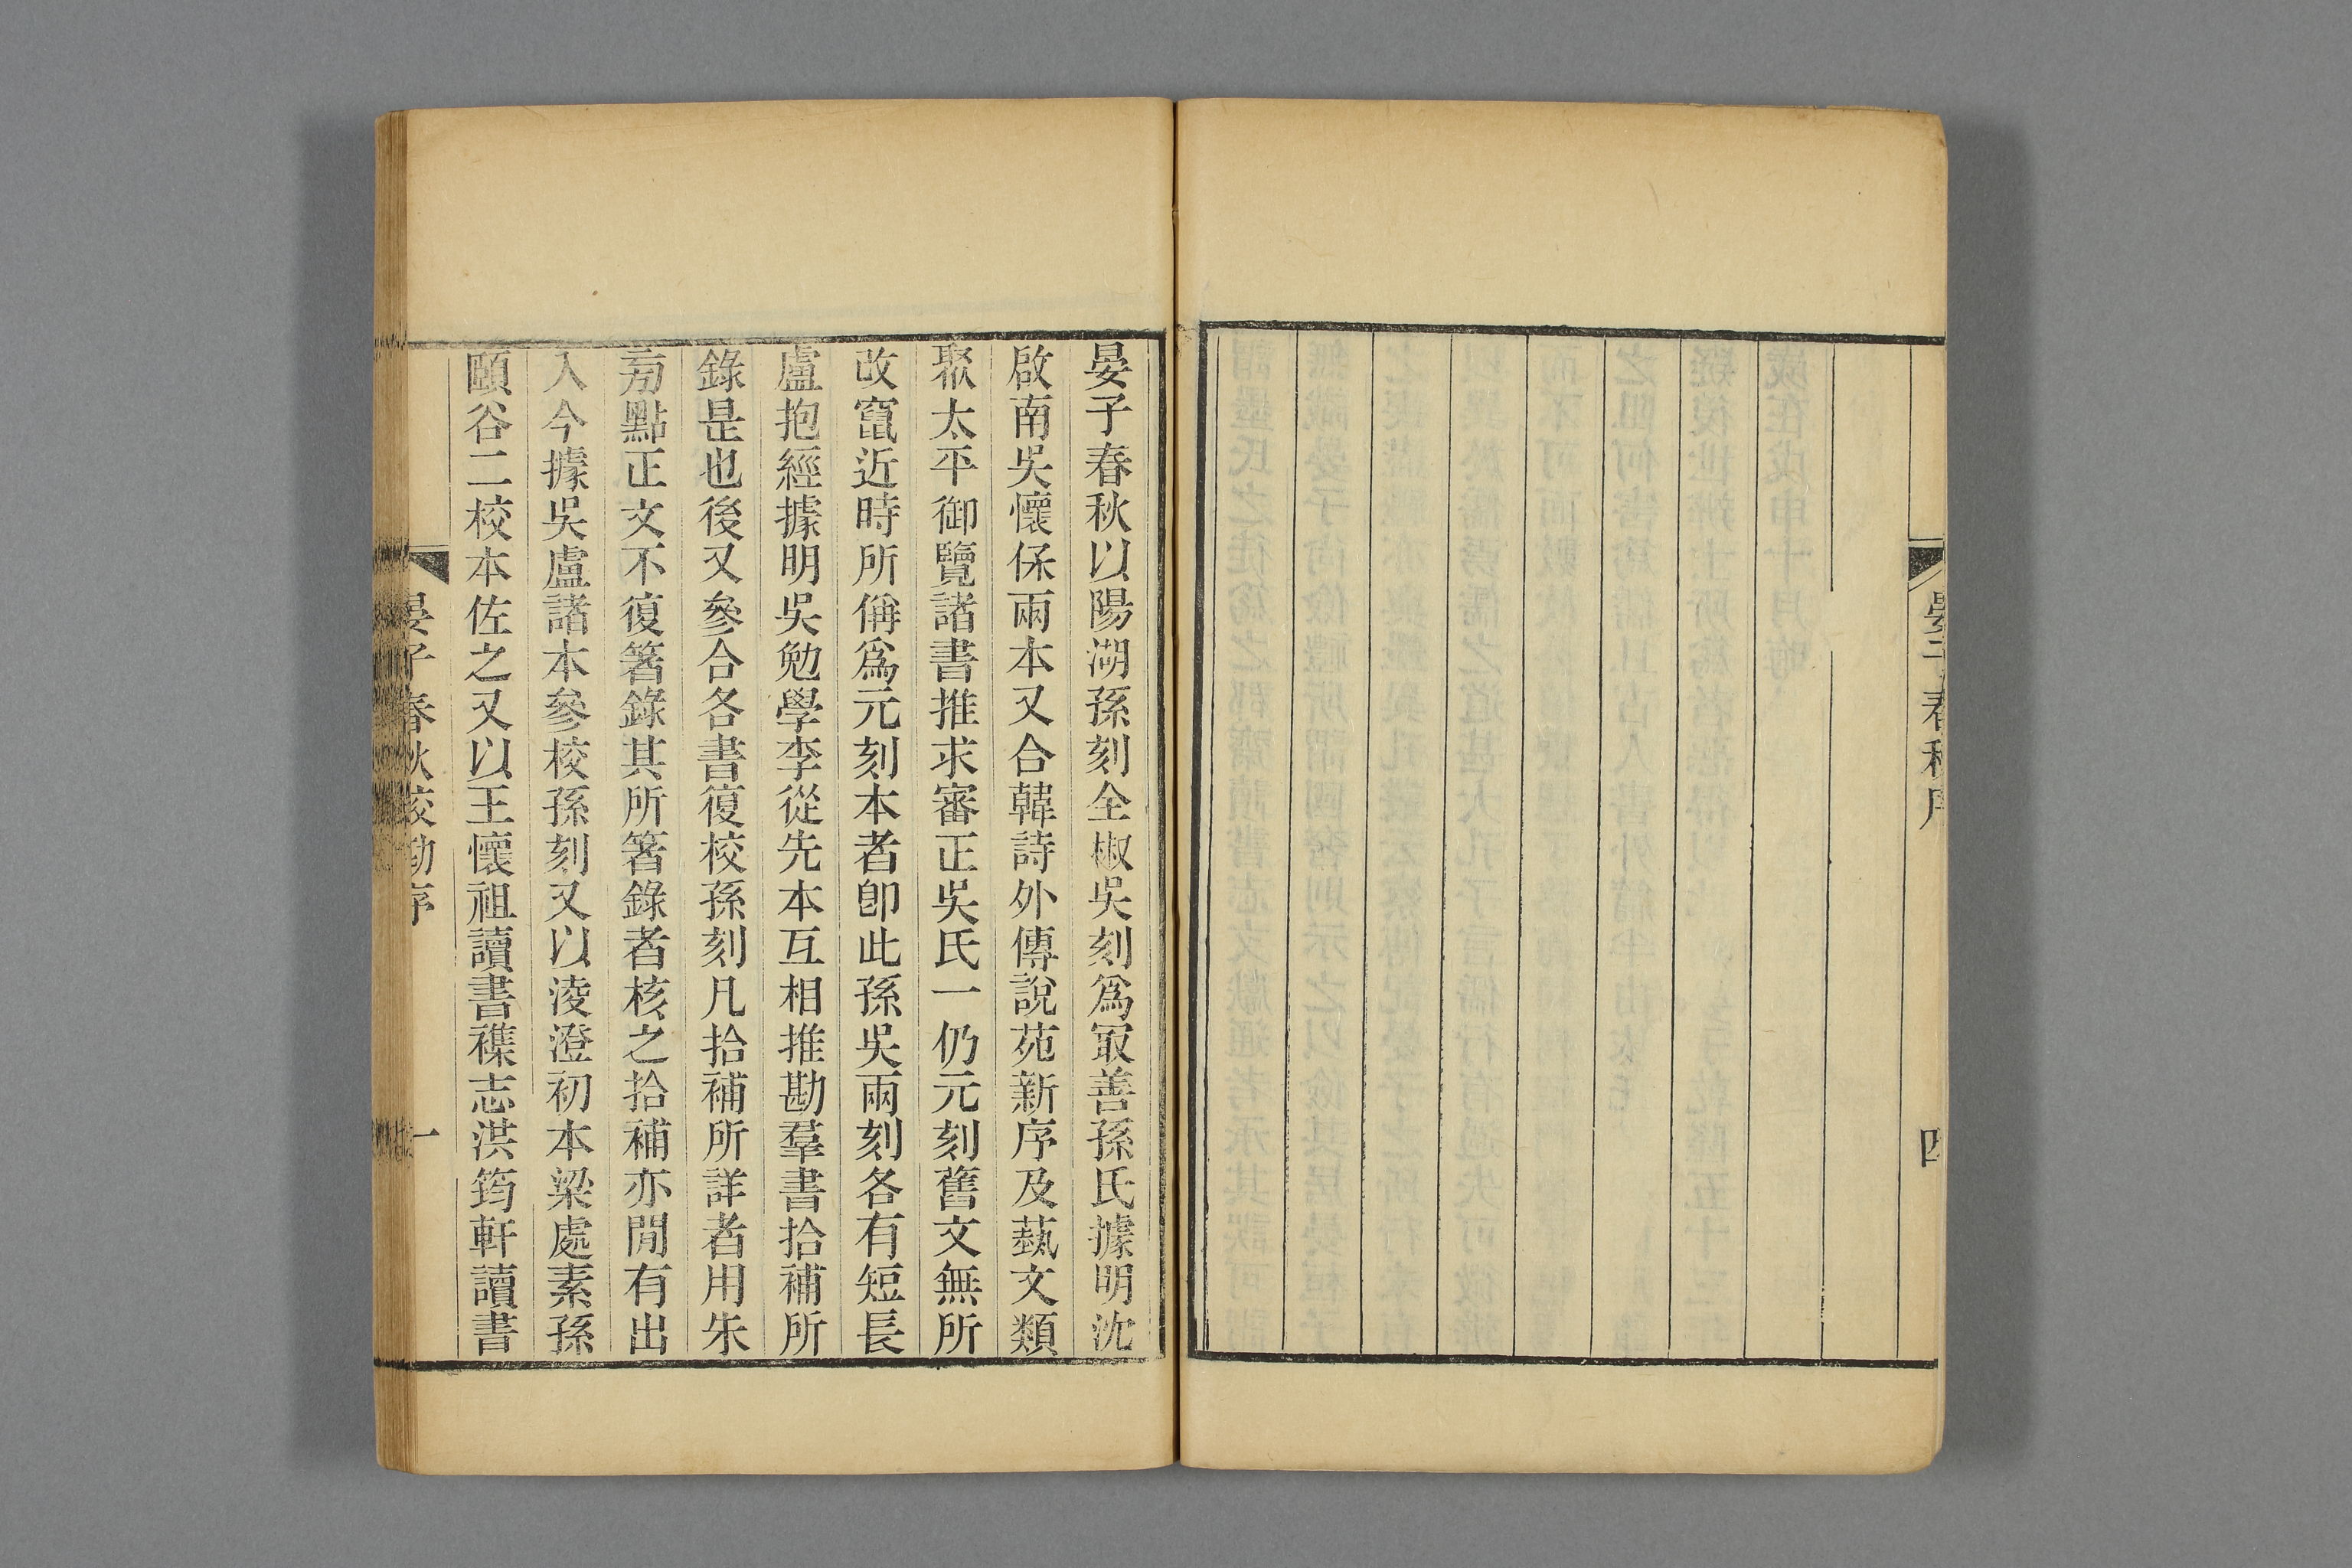 晏子春秋序
四
晏子春秋以陽湖孫刻全椒吳刻爲冣善孫氏據明沈
啟南吳懷保兩本又合韓詩外傳說苑新序及蓺文類
聚太平御覽諸書推求審正吳氏一仍元刻舊文無所
改竄近時所偁爲元刻本者卽此孫吳兩刻各有短長
盧抱經據明吳勉學李從先本互相推勘羣書拾補所
錄是也後又參合各書復校孫刻凡拾補所詳者用朱
㫄點正文不復箸錄其所箸錄者核之拾補亦閒有出
入今據吳盧諸本參校孫刻又以淩澄初本梁處素孫
頤谷二校本佐之又以王懷祖讀書襍志洪筠軒讀書
晏子春秋校勘序
一